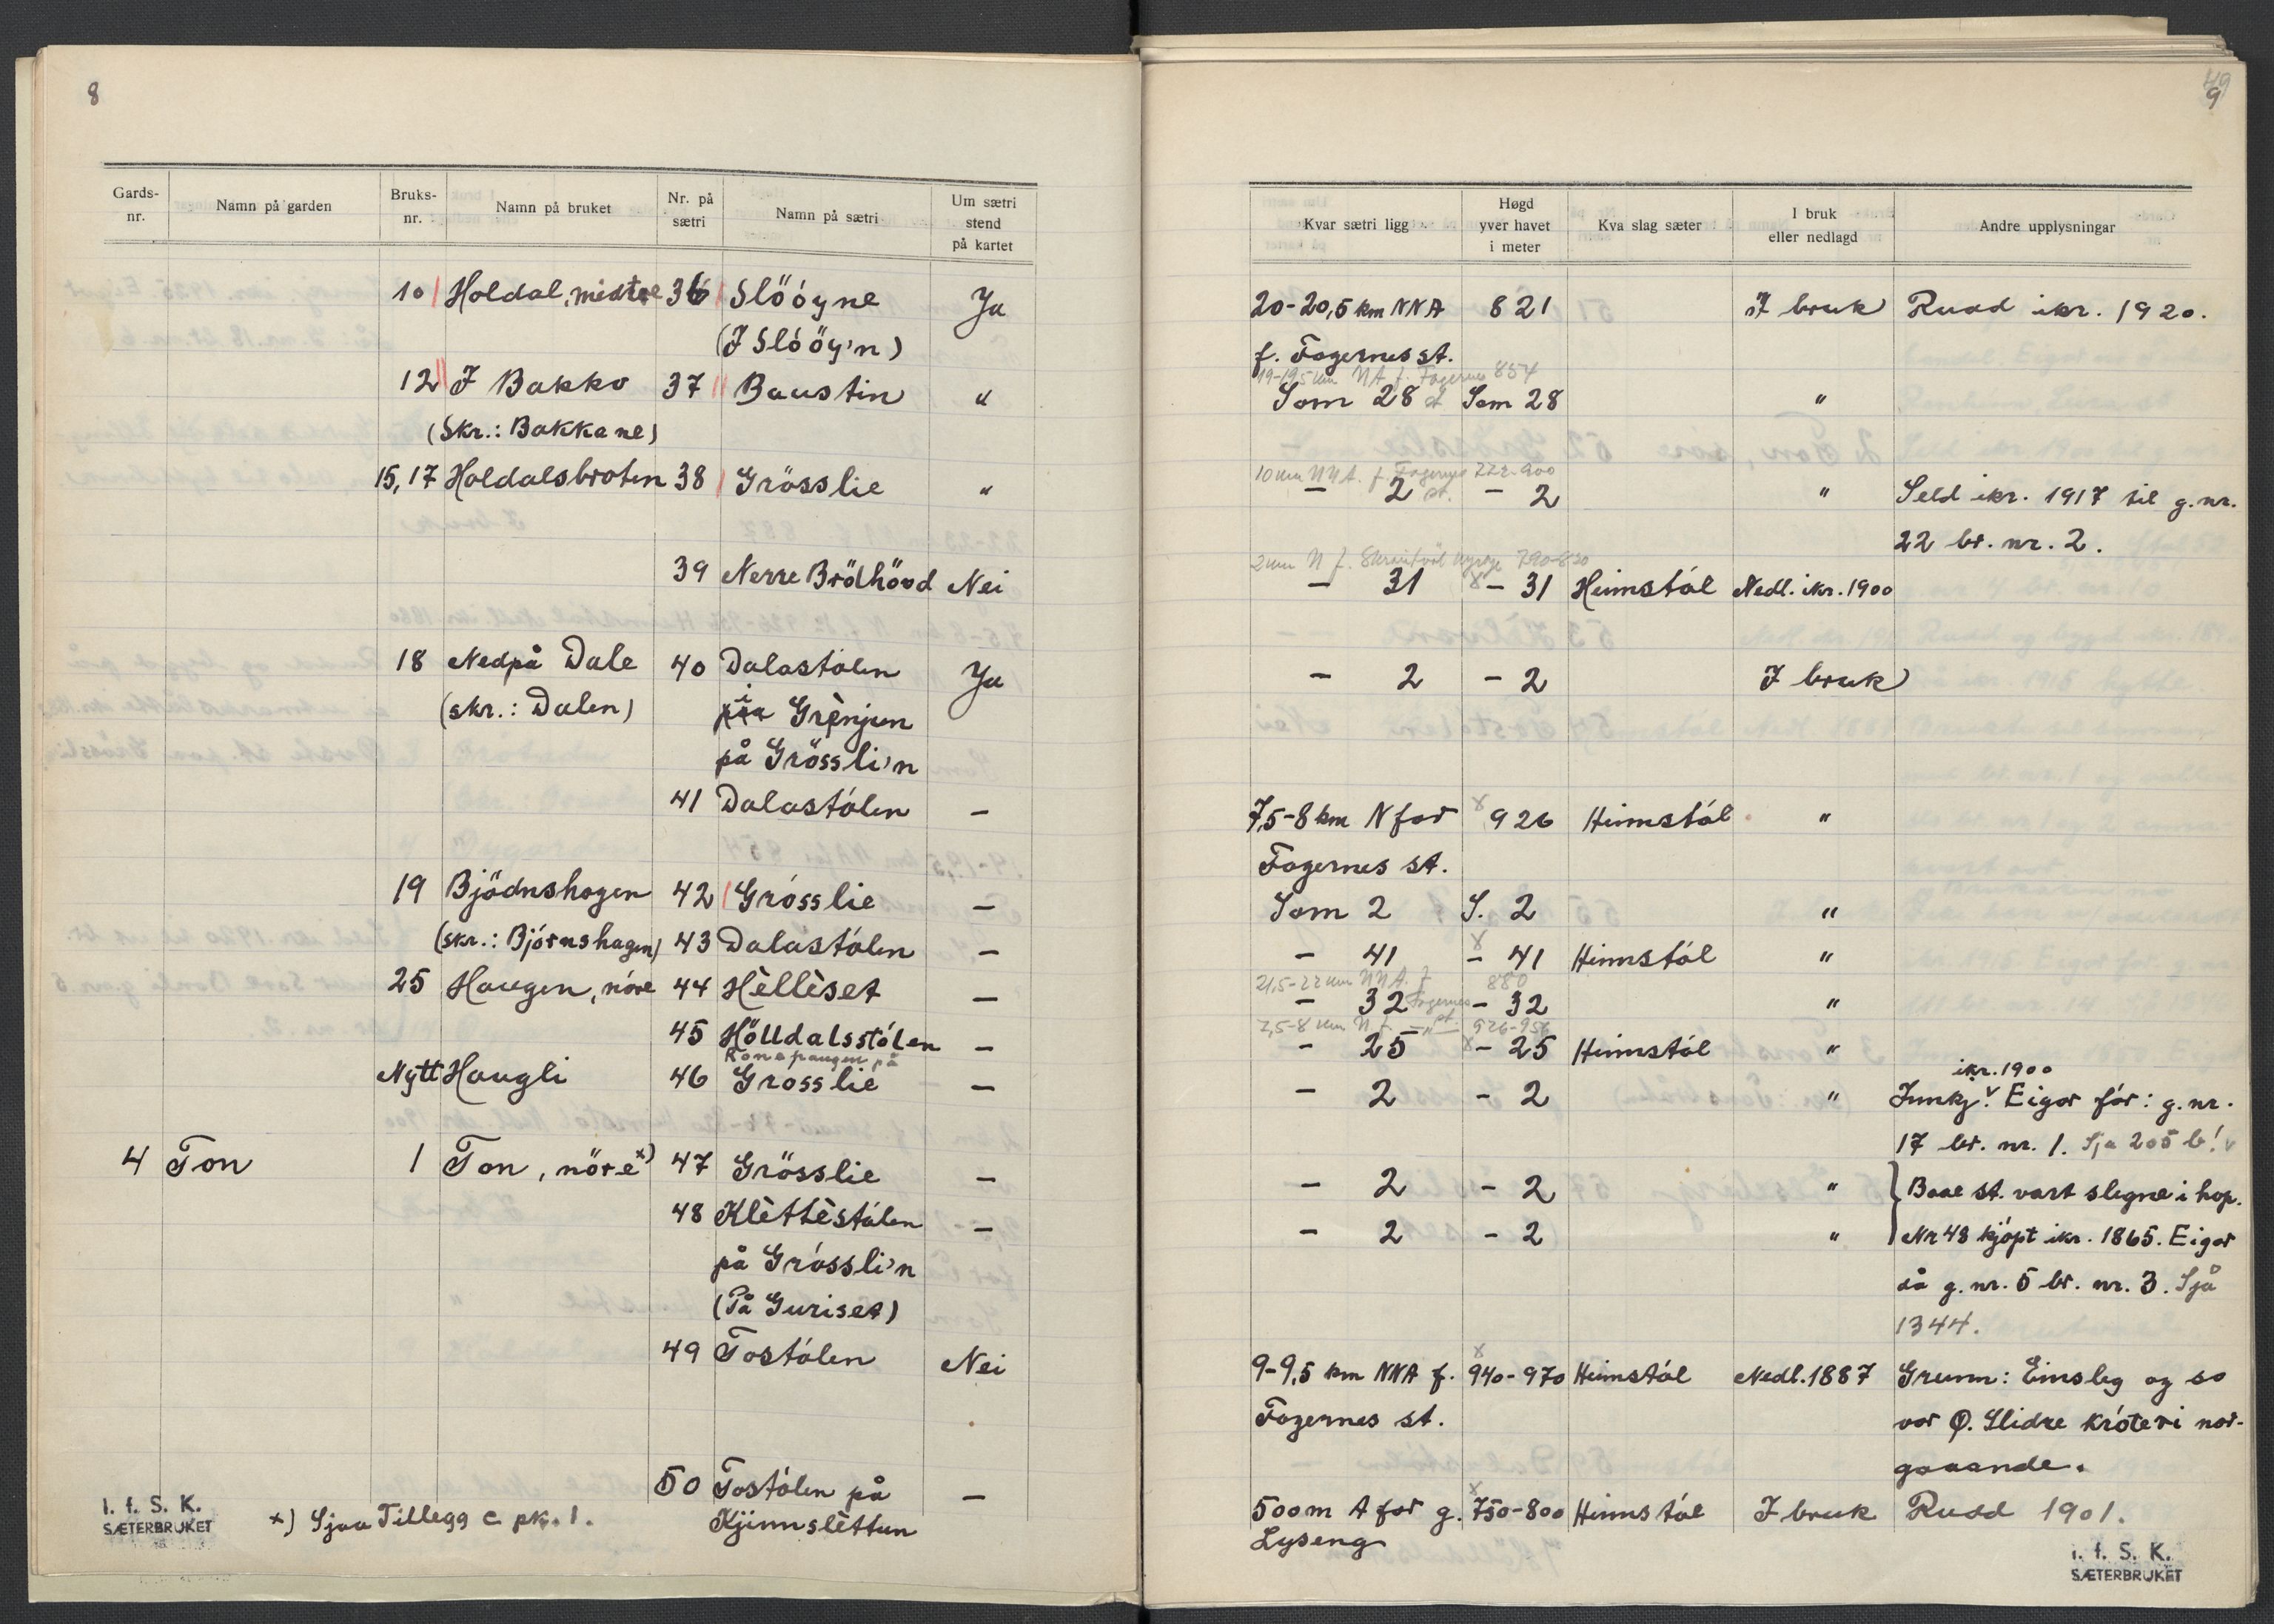 8
Gards-nr. Namn på garden Bruks-nr. Namn på bruket Nr. på sætri Namn på sætri Um sætri stend på kartet
10 Holdal, midtre 36 Slööyne Ja
(I Slööy'n)
12 I Bakko 37 Baustin "
(Skr.: Bakkane)
15, 17 Holdalsbroten 38 Grösslie "
39 Nerre Brödhövd Nei
18 Nedpå Dale 40 Dalastölen Ja
(skr.: Dalen) i Grènjun
på Grössli'n
41 Dalastölen –
19 Bjödnshagen 42 Grösslie –
(skr.: Bjørnshagen) 43 Dalastölen –
25 Haugen, nöre 44 Hèllèset –
45 Hölldalsstölen –
Nytt Haugli 46 Grösslie –
4 Ton 1 Ton, nöre x) 47 Grösslie –
48 Klèttèstölen –
på Grössli'n
(På Guriset)
49 Tostölen Nei
50 Tostölen på –
Kjinnslèttun
x) Sjaa Tillegg c pk. 1.
I. f. S. K.
SÆTERBRUKET
49
9
Kvar sætri ligg Høgd yver havet i meter Kva slag sæter I bruk eller nedlagd Andre upplysningar
20-20,5 km NNA 821 I bruk Rudd ikr. 1920.
f. Fagernes st.
19-19,5 km NA f. Fagernes 854
Som 28 st Som 28 "
10 km NNA. f. Fagernes 772-900
– 2 st. – 2 " Seld ikr. 1917 til g. nr.
22 br. nr. 2.
2 km N f. Skrautvål kyrkje 790-830
– 31 x – 31 Heimstöl Nedl. ikr. 1900
– 2 – 2 I bruk
7,5-8 km N for x 926 Heimstöl "
Fagernes st.
Som 2 S. 2 "
– 41 x – 41 Heimstöl "
21,5-22 km NNA. f 880
– 32 Fagernes – 32 "
7,5-8 km N f. –"– st 926-956
– 25 x – 25 Heimstöl "
ikr. 1900
– 2 – 2 " Innkj. v Eigar för: g. nr.
17 br. nr. 1. Sja 205 b! v
– 2 – 2 " Baae st. vart slegne i hop.
– 2 – 2 " Nr 48 kjöpt ikr. 1865. Eigar
då g. nr. 5 br. nr. 3. Sjå
1344.
9-9,5 km NNA f. x 940-970 Heimstöl Nedl. 1887 Grunn: Einsleg og so
Fagernes st. var Ø. Slidre kröteri nor-
gaaande.
500 m A for g. x 750-800 Heimstöl I bruk Rudd 1901.
Lyseng
I. f. S. K.
SÆTERBRUKET